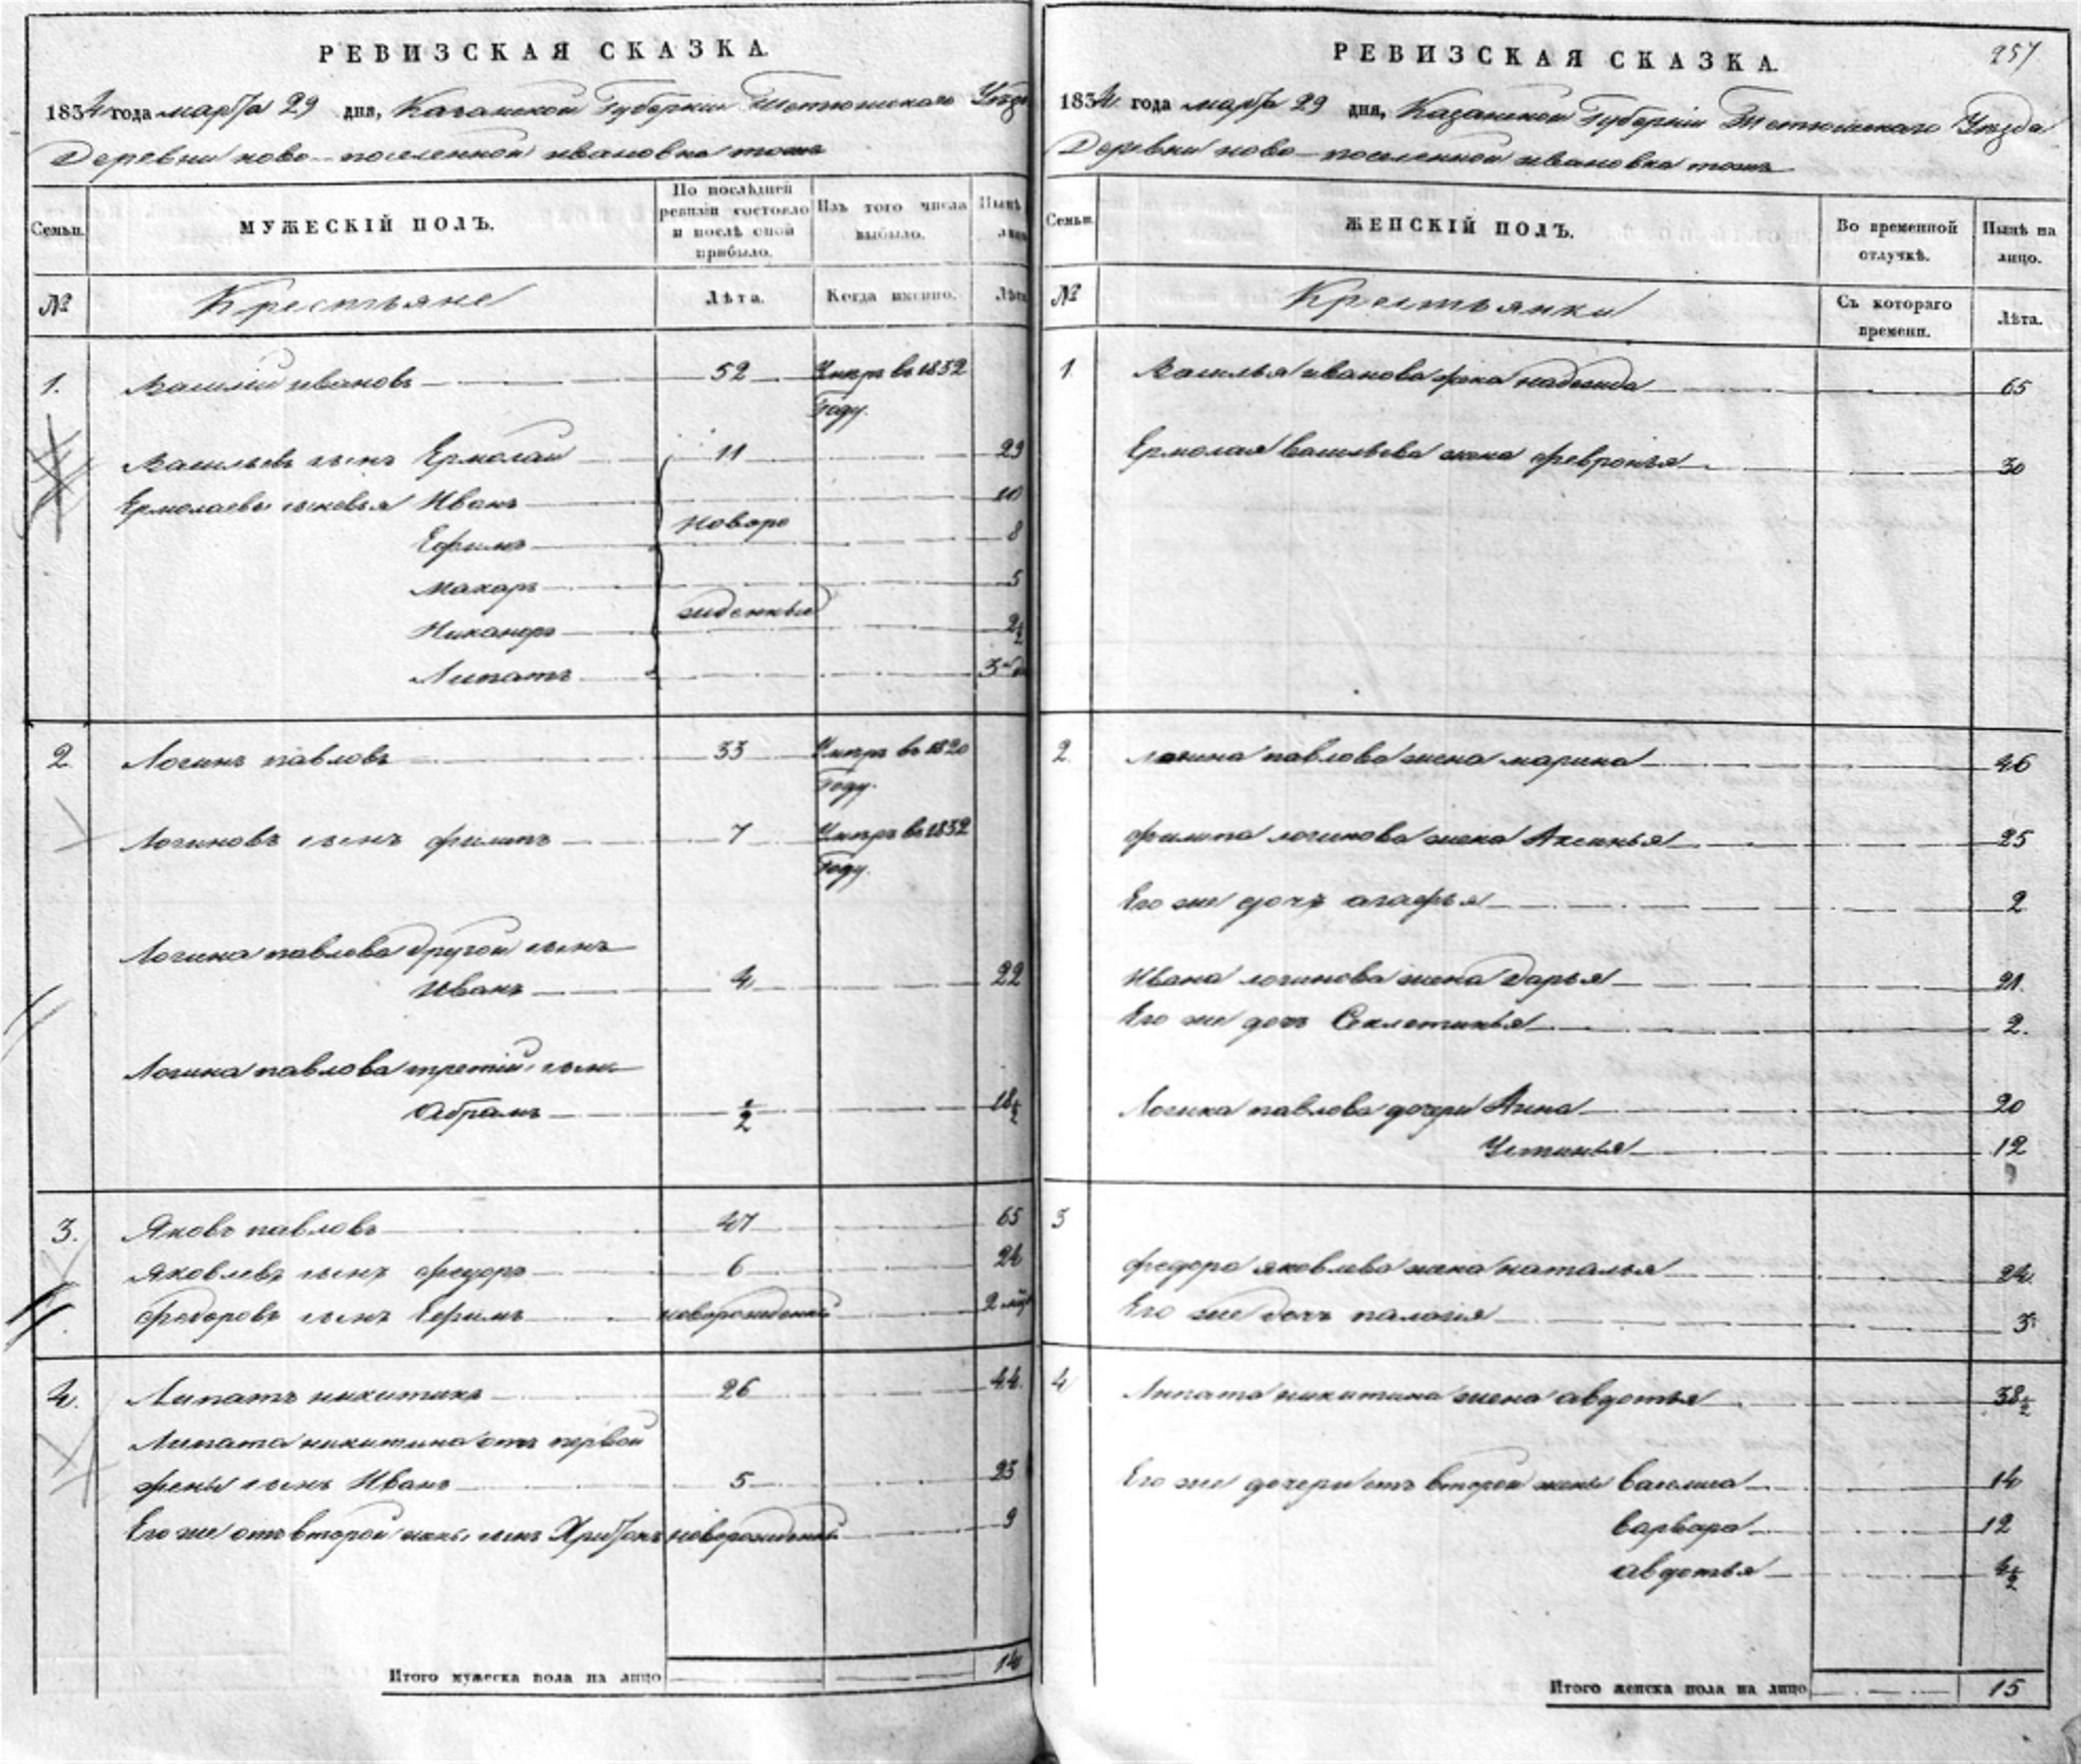 РЕВИЗСКАЯ СКАЗКА.
1834 года марта 29 дня, Казанской Губернии Тетюшскаго Уезда
Деревни ново-поселенной ивановка тожъ
Семьи.
МУЖЕСКІЙ ПОЛЪ.
По послѣдней ревизіи состояло и послѣ оной прибыло.
Изъ того числа выбыло.
Нынѣ на лицо
№
Крестьяне
Лѣта.
Когда именно.
Лѣта
1. Василий ивановъ 52 Умеръ въ 1832 Году.
Васильевъ сынъ Ермолай 11 29
Ермолаевы сыновья Иванъ 10
Ефимъ Новоро 8
Макаръ 5
Никаноръ жденныя 2½
Липатъ 3
2. Логинъ павловъ 33 Умеръ въ 1820 Году.
Логиновъ сынъ филипъ 7 Умеръ въ 1832 Году.
Логина павлова другой сынъ
Иванъ 4 22
Логина павлова третий сынъ
Абрамъ ½ 18½
3. Яковъ павловъ 47 65
Яковлевъ сынъ федоръ 6 24
федоровъ сынъ Ефимъ новорожденный 2 мѣс
4. Липатъ никитинъ 26 44.
Липата никитина отъ первой
жены сынъ Иванъ 5 23
Его же отъ второй жены сынъ Харитонъ новорожденный 9
Итого мужеска пола на лицо 14
РЕВИЗСКАЯ СКАЗКА. 257
1834 года марта 29 дня, Казанской Губерніи Тетюшскаго Уезда
Деревни ново-поселенной ивановка тожъ
Семьи.
ЖЕНСКІЙ ПОЛЪ.
Во временной отлучкѣ.
Нынѣ на лицо.
№
Крестьянки
Съ котораго времени.
Лѣта.
1 Василья иванова жена надежда 65
Ермолая васильева жена февронья 30
2. логина павлова жена марина 46
филипа логинова жена Аксинья 25
Его же дочь агафья 2
Ивана логинова жена дарья 21.
Его же дочь Секлетинья 2.
Логина павлова дочери Анна 20
Устинья 12
3
федора яковлева жена наталья 24.
Его же дочь палагия 3
4 Липата никитина жена авдотья 38½
Его же дочери отъ второй жены василиса 14
варвара 12
авдотья 4½
Итого женска пола на лицо 15